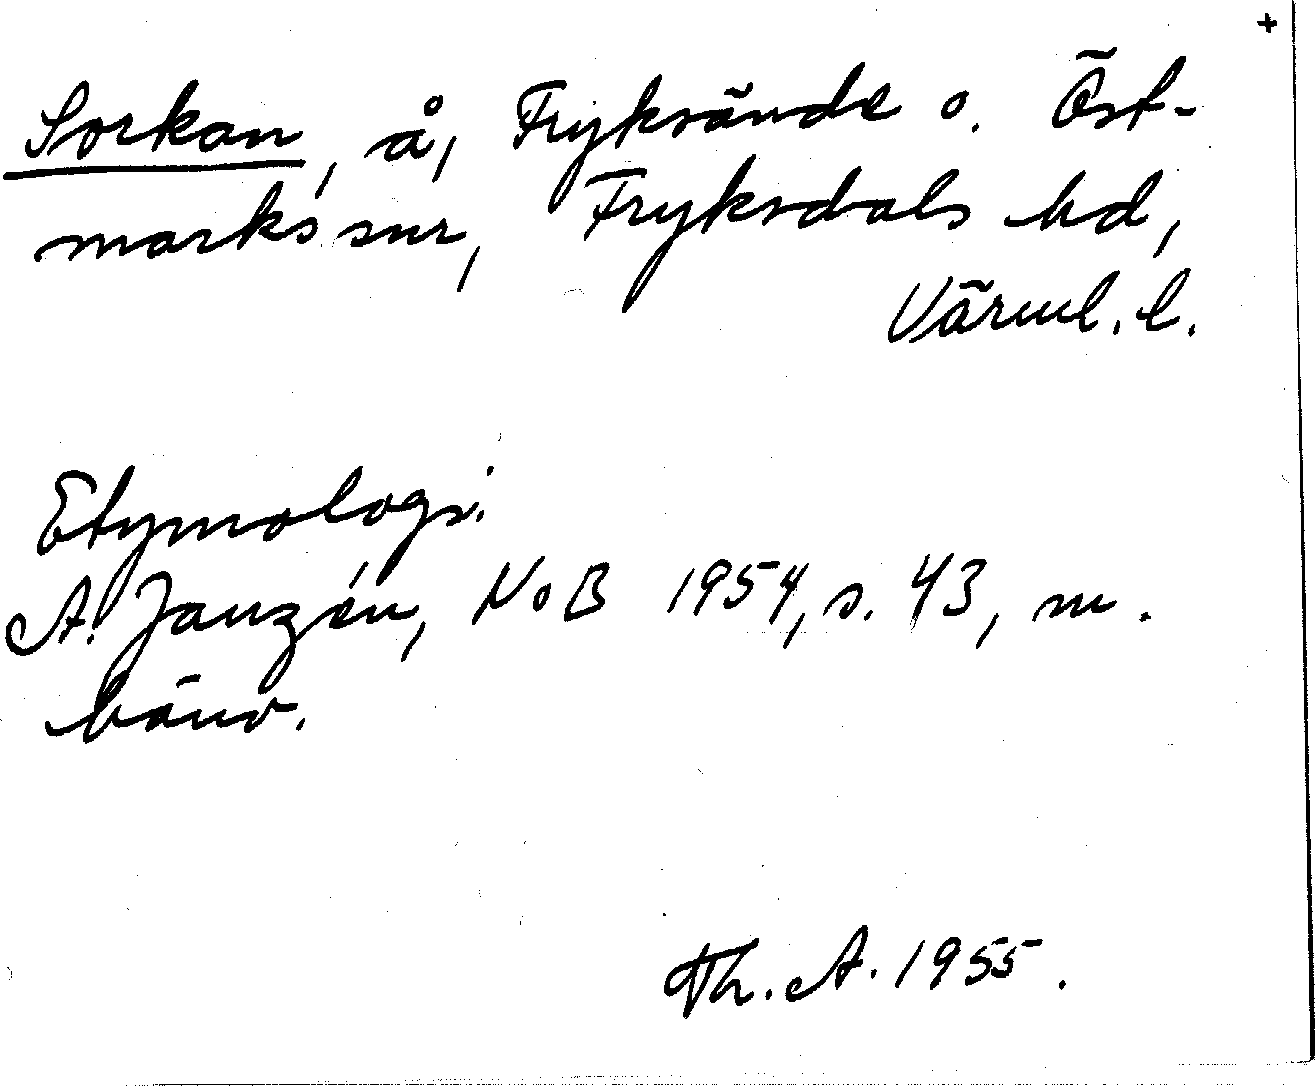 +
Sorkan, å, Fryksände o. Öst-
marks snr, Fryksdals hd,
Värml. l.
Etymologi:
A. Janzén, NoB 1954, s. 43, m.
hänv.
Th. A. 1955.